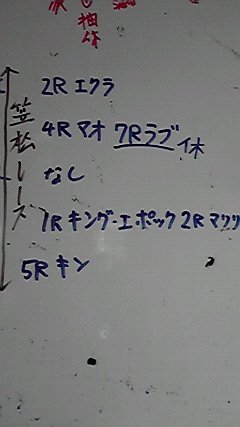 2R エクラ
4R マオ 7Rラブ 休
なし
1R キング・エポック 2R マリリ
5R キン
笠松レース